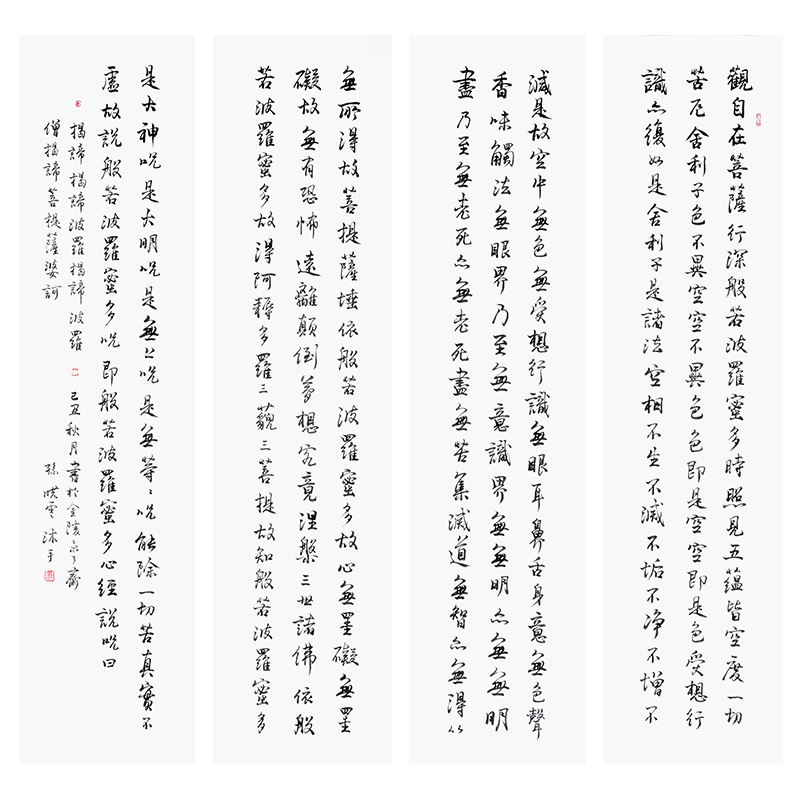 觀自在菩薩行深般若波羅蜜多時照見五蘊皆空度一切
苦厄舍利子色不異空空不異色色即是空空即是色受想行
識亦復如是舍利子是諸法空相不生不滅不垢不净不增不
減是故空中無色無受想行識無眼耳鼻舌身意無色聲
香味觸法無眼界乃至無意識界無無明亦無無明
盡乃至無老死亦無老死盡無苦集滅道無智亦無得以
無所得故菩提薩埵依般若波羅蜜多故心無罣礙無罣
礙故無有恐怖遠離顛倒夢想究竟涅槃三世諸佛依般
若波羅蜜多故得阿耨多羅三藐三菩提故知般若波羅蜜多
是大神咒是大明咒是無上咒是無等〻咒能除一切苦真實不
虛故說般若波羅蜜多咒即般若波羅蜜多心經說咒曰
揭諦揭諦波羅揭諦波羅
僧揭諦菩提薩婆訶
己丑秋月書於金陵齋
孫曉雲沐手